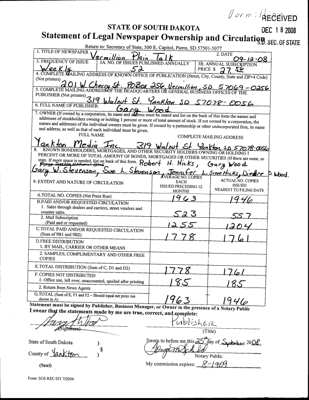 Vermill
RECEIVED
DEC 18 2008
S.D. SEC. OF STATE
STATE OF SOUTH DAKOTA
Statement of Legal Newspaper Ownership and Circulation
Return to: Secretary of State, 500 E. Capitol, Pierre, SD 57501-5077
1. TITLE OF NEWSPAPER Vermillion Plain Talk
2. DATE 09-12-08
3. FREQUENCY OF ISSUE Weekly
3A. NO. OF ISSUES PUBLISHED ANNUALLY 52
3B. ANNUAL SUBSCRIPTION PRICE $ 27
4. COMPLETE MAILING ADDRESS OF KNOWN OFFICE OF PUBLICATION (Street, City, County, State and ZIP+4 Code) (Not printer)
201 W Cherry St. PO Box 256 Vermillion, SD 57069-0256
5. COMPLETE MAILING ADDRESS OF THE HEADQUARTERS OR GENERAL BUSINESS OFFICES OF THE PUBLISHER (Not printer)
319 Walnut St. Yankton SD 57078-0056
6. FULL NAME OF PUBLISHER: Gary Wood
7. OWNER (If owned by a corporation, its name and address must be stated and list on the back of this form the names and
addresses of stockholders owning or holding 1 percent or more of total amount of stock. If not owned by a corporation, the
names and addresses of the individual owners must be given. If owned by a partnership or other unincorporated firm, its name
and address, as well as that of each individual must be given.
FULL NAME
COMPLETE MAILING ADDRESS
Yankton Media Inc. 319 Walnut St Yankton SD 57078-0056
8. KNOWN BONDHOLDERS, MORTGAGES, AND OTHER SECURITY HOLDERS OWNING OR HOLDING 1
PERCENT OR MORE OF TOTAL AMOUNT OF BONDS, MORTGAGES OR OTHER SECURITIES (If there are none, so
state. If more space is needed, list on back of this form.
Robert H. Hicks, Gary Wood
Gary W Stevenson, Sue L. Stevenson, Jennifer L. Wood
9. EXTENT AND NATURE OF CIRCULATION
AVERAGE NO. COPIES EACH ISSUED PRECEDING 12 MONTHS
ACTUAL NO. COPIES ISSUED NEAREST TO FILING DATE
A. TOTAL NO. COPIES (Net Press Run) 1963 1946
B. PAID AND/OR REQUESTED CIRCULATION
1. Sales through dealers and carriers, street vendors and
counter sales. 523 557
2. Mail Subscription
(Paid and or requested) 1255 1204
C. TOTAL PAID AND/OR REQUESTED CIRCULATION
(Sum of 9B1 and 9B2) 1778 1761
D. FREE DISTRIBUTION
1. BY MAIL, CARRIER OR OTHER MEANS
2. SAMPLES, COMPLIMENTARY AND OTHER FREE
COPIES
E. TOTAL DISTRIBUTION (Sum of C, D1 and D2) 1778 1761
F. COPIES NOT DISTRIBUTED
1. Office use, left over, unaccounted, spoiled after printing 185 185
2. Return from News Agents
G. TOTAL (Sum of E, F1 and F2 - Should equal net press run
shown in A) 1963 1946
Statement must be signed by Publisher, Business Manager, or Owner in the presence of a Notary Public
I swear that the statements made by me are true, correct, and complete:
Publisher
(Signature)
(Title)
State of South Dakota )
County of Yankton )
Sworn to before me this 25 day of September, 2008.
Notary Public
(Seal)
My commission expires: 8-1909
Form: SOS REC 051 7/2004